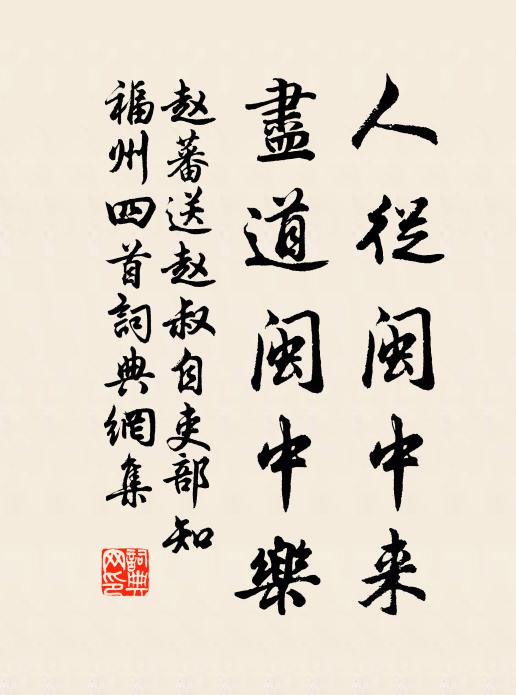 人從闽中来
盡道闽中樂
赵蕃送赵叔自吏部知
福州四首詞典網集
詞典
网印